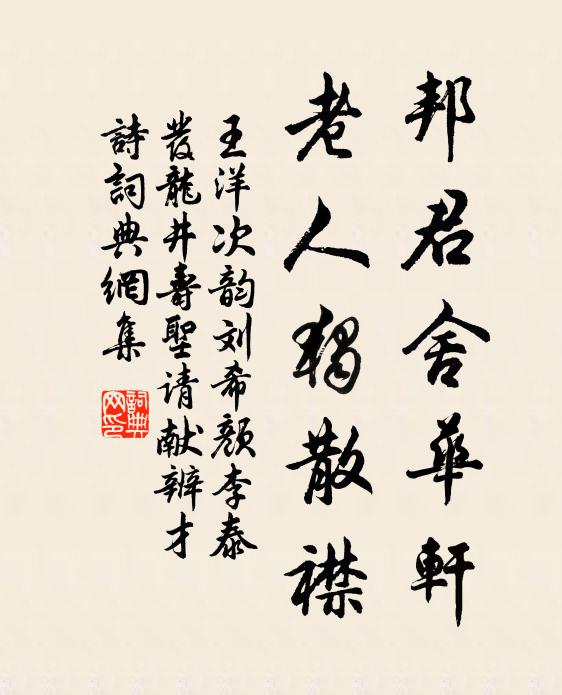 邦君舍華軒
老人獨散襟
王洋次韵刘希颜李泰
發龍井壽聖请献辨才
詩詞典網集
詞典
网印